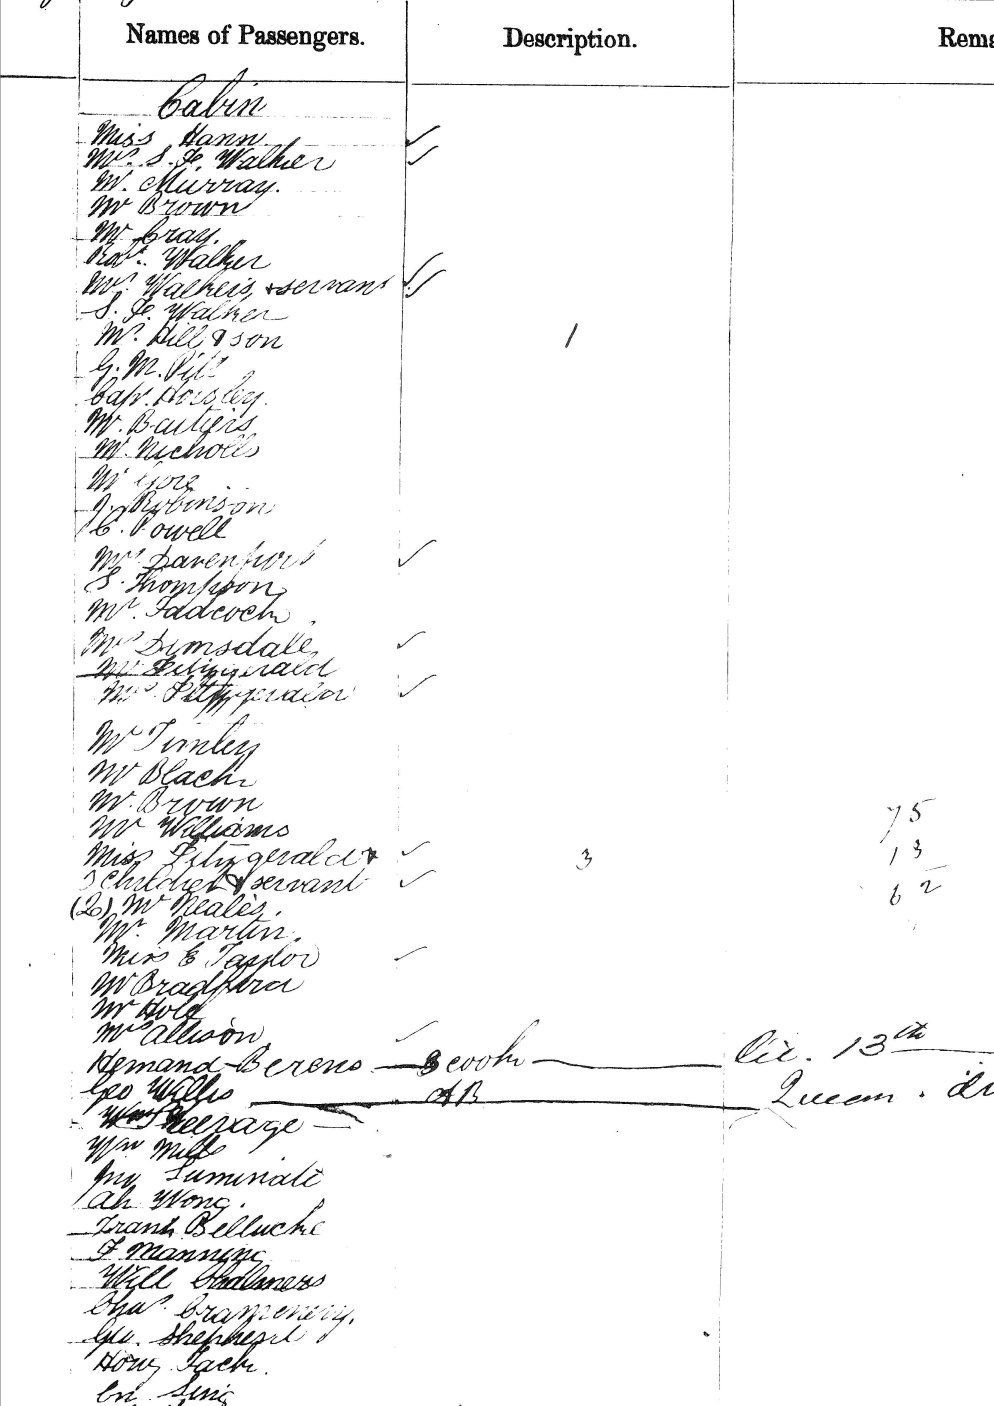 Names of Passengers. Description. Rema
Cabin
Miss Hann ✓
Mrs. S. F. Walker ✓
Mr. Murray.
Mr Brown
Mr Gray.
Walker
Mrs. Walkers, & servant ✓✓
S. F. Walker
Mr. Hill & son 1
G. M. Pitt
Capt. Horsley.
Mr.
Mr. Nicholls
Mr Gore
J. Robinson
C. Powell
Mrs Davenport ✓
S. Thompson
Mr. Tadcock
Mrs Dimsdale ✓
Mr Fitzgerald
Mrs. Fitzgerald ✓
Mr Timley
Mr Black
Mr. Brown 75
Mr Williams
Miss Fitzgerald & ✓ 3 13
3 children & servant ✓ 62
(2) Mr Neales.
Mr. Martin.
Miss E Taylor ✓
Mr Bradford
Mr Holt
Mrs Allison ✓
Hemand Berens S cook lic. 13th
Geo Willis AB Queen . dr
Steerage
Wm Mills
Jno Luminati
Ah Wong.
Frank Belluche
F Manning
Will Chalmers
Chas.
Geo. Shepherd
Hong Tack.
Sing